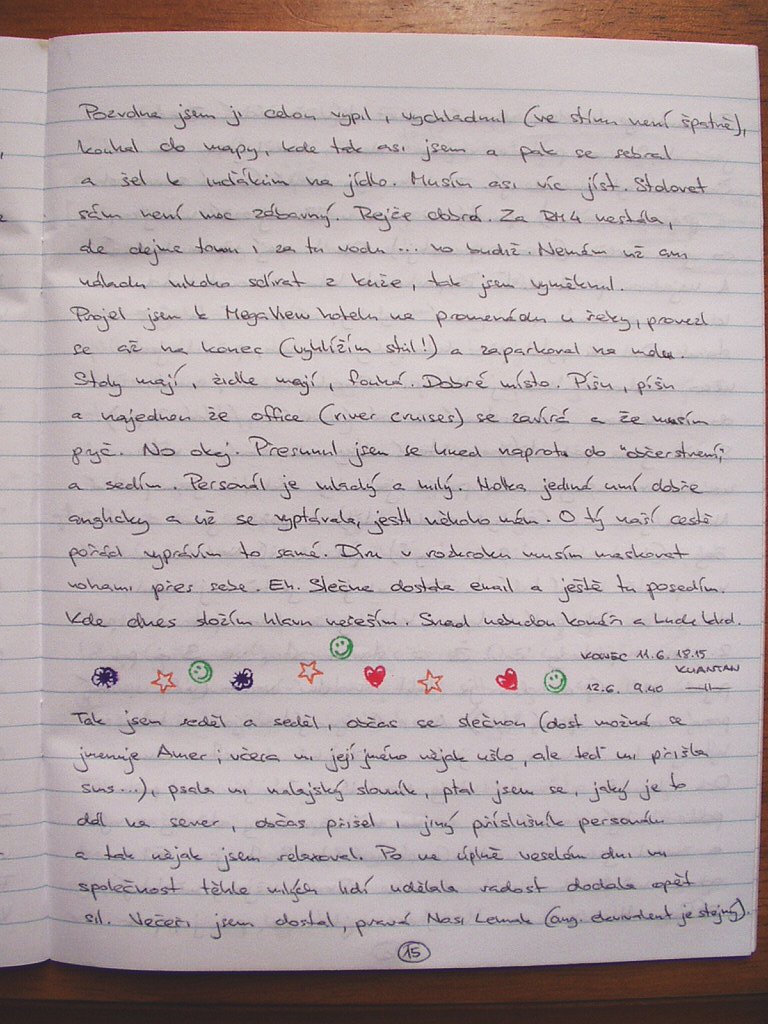 Pozvolna jsem ji celou vypil, vychladnul (ve stínu není špatně),
koukal do mapy, kde tak asi jsem a pak se sebral
a šel k indákům na jídlo. Musím asi víc jíst. Stolovat
sám není moc zábavný. Rejže dobrá. Za RM4 nestála,
ale dejme tomu i za tu vodu ... no budiž. Nemám už ani
náladu nikoho sdírat z kůže, tak jsem vyměknul.
Projel jsem k MegaView hotelu na promenádu u řeky, provezl
se až na konec (vyhlížím stůl!) a zaparkoval na molu.
Stoly mají, židle mají, fouká. Dobré místo. Píšu, píšu
a najednou že office (river cruises) se zavírá a že musím
pryč. No okej. Přesunul jsem se hned naproti do "občerstvení"
a sedím. Personál je mladý a milý. Holka jediná umí dobře
anglicky a už se vyptávala, jestli někoho mám. O tý naší cestě
pořád vyprávím to samé. Díru v rozkroku musím maskovat
nohami přes sebe. Eh. Slečna dostala email a ještě tu posedím.
Kde dnes složím hlavu neřeším. Snad nebudou komáři a bude klid.
KONEC 11.6. 18.15
KUANTAN
12.6. 9.40 —||—
Tak jsem seděl a seděl, občas se slečnou (dost možná se
jmenuje Amer; včera mi její jméno nějak ušlo, ale teď mi přišla
sms...), psala mi malajský slovník, ptal jsem se, jaký je to
dál na sever, občas přišel i jiný příslušník personálu
a tak nějak jsem relaxoval. Po ne úplně veselém dni mi
společnost těhle milých lidí udělala radost dodala opět
sil. Večeři jsem dostal, pravá Nasi Lemak (ang. ekvivalent je stejný).
15